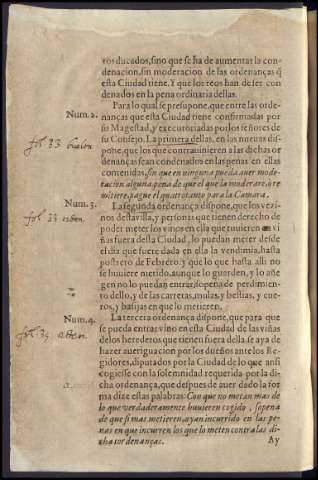 ros ducados, sino que se ha de aumentar la con-
denacion, sin moderacion de las ordenanças q̃
esta Ciudad tiene. Y que los reos han de ser con
denados en la pena ordinaria dellas.
Para lo qual se presupone, que entre las orde-
Num. 2.
nanças que esta Ciudad tiene confirmadas por
su Magestad, y executoriadas por los señores de
su Consejo. La primera dellas, en las nueuas dis-
fol 33
pone, que los que contrauinieren a las dichas or
denanças sean condenados en las penas en ellas
contenidas, sin que en ninguna pueda auer mode-
racion alguna, pena de que el que la moderare, o re
mitiere, pague el quatro tanto para la Camara.
Num. 3.
La segũda ordenança dispone, que los vezi-
fol 33
nos desta villa, y personas que tienen derecho de
poder meter los vinos en ella que tuuieren en vi
ñas fuera desta Ciudad, lo puedan meter desde
el dia que fuere dada en ella la vendimia, hasta
postrero de Febrero: y que lo que hasta alli no
se huuiere metido, aunque lo guarden, y lo alẽ
gen no lo puedan entrar, sopena de perdimien
to dello, y de las carretas, mulas, y bestias, y cue-
ros, y basijas en que lo metieren.
Num. 4.
La tercera ordenança dispone, que para que
se pueda entrar vino en esta Ciudad de las viñas
de los herederos que tienen fuera della, se aya de
hazer aueriguacion por los dueños ante los Re-
gidores, diputados por la Ciudad de lo que ansi
cogiesse con la solemnidad requerida por la di-
cha ordenança, que despues de auer dado la for
ma dize estas palabras: Con que no metan mas de
lo que verdaderamente huuieren cogido, sopena
de que si mas metieren, ayan incurrido en las pe-
nas en que incurren los que lo meten contra las di-
chas ordenanças.
Ay